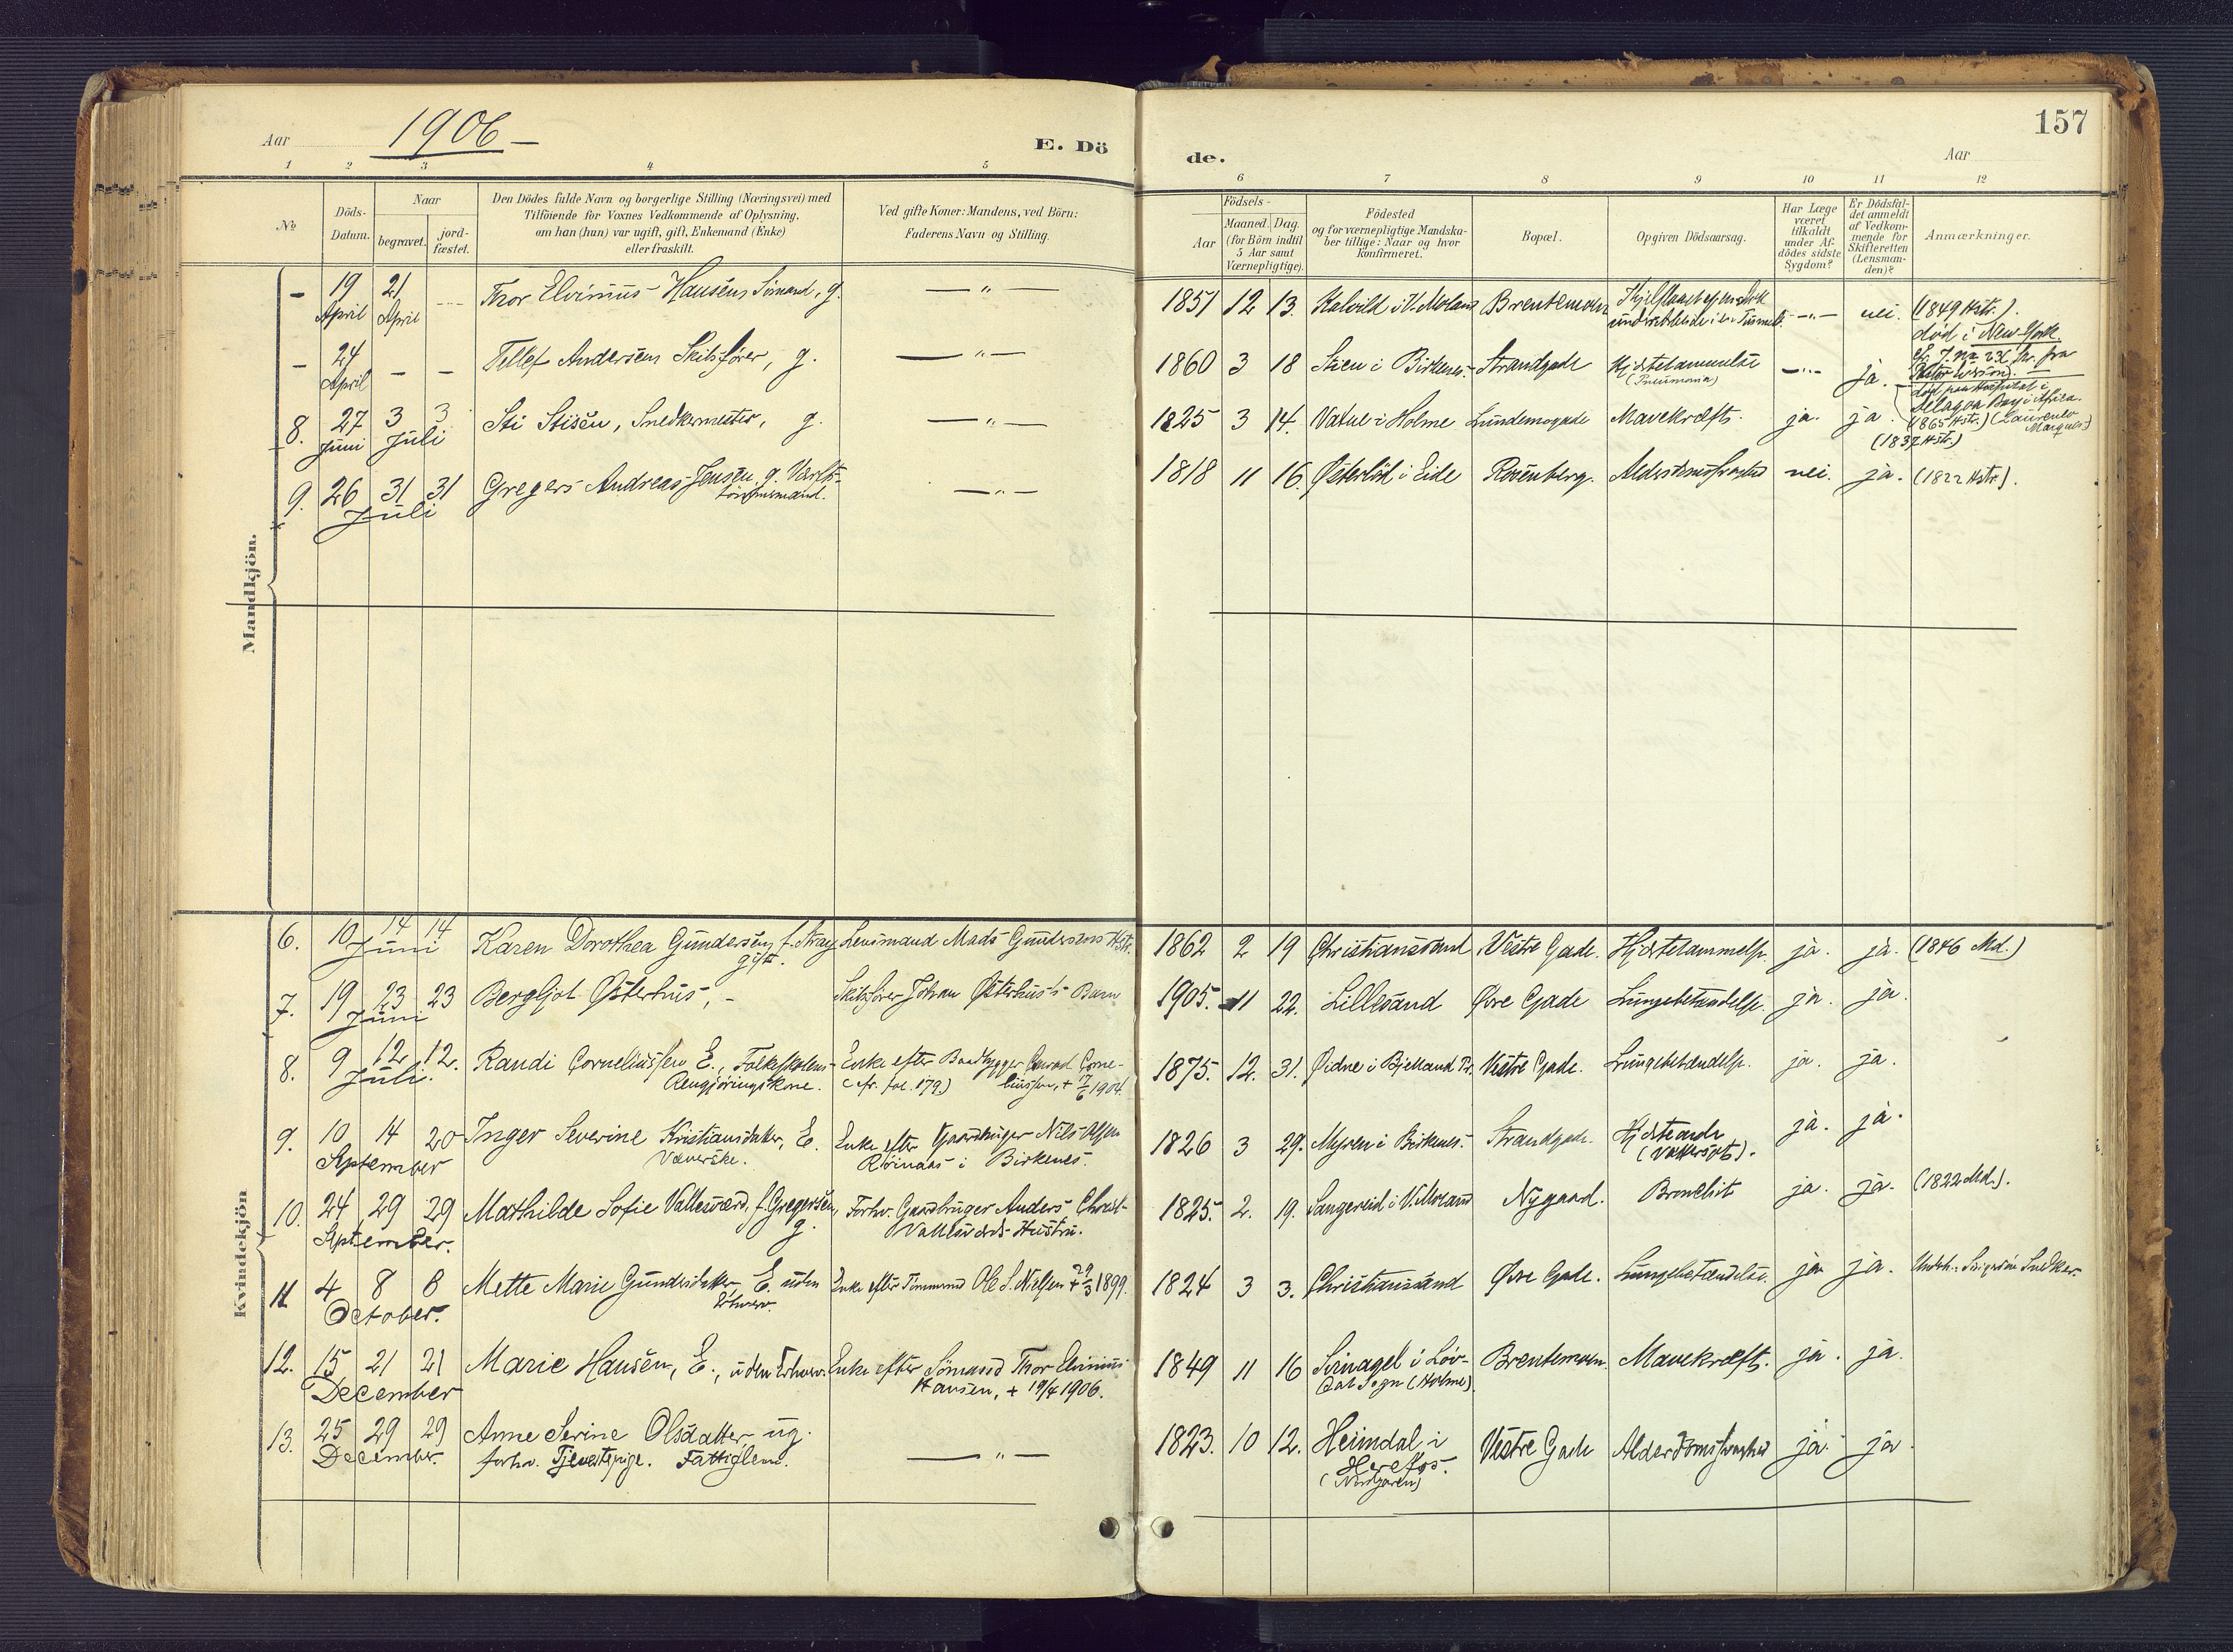 Aar 1906 —
E. Dö
1 2 3 4 5
№
Döds-
Datum.
Naar
begravet.
jord-
fæstet.
Den Dödes fulde Navn og borgerlige Stilling (Næringsvei) med
Tilföiende for Voxnes Vedkommende af Oplysning,
om han (hun) var ugift, gift, Enkemand (Enke)
eller fraskilt.
Ved gifte Koner: Mandens, ved Börn:
Faderens Navn og Stilling.
Mandkjön.
- 19 21 --- Thor Elvinius Hansen, Sømand, g. — " —
April April
- 24 - - Tellef Andersen Skibsfører, g. — " —
April
8. 27 3 3 Sti Stisen, Snedkermester, g. — " —
Juni Juli
9. 26 31 31 Gregers Andreas Jensen, g. Værfts- — " —
Juli tømmermand.
Kvindekjön
6. 10 14 14 Karen Dorothea Gundersen, f. Stray Lensmand Mads Gundersens Hstr.
Juni gift.
7. 19 23 23 Bergljot Østerhus, - Skibsfører Johan Østerhus's Barn
Juni
8. 9 12 12. Randi Corneliussen E., Folkeskolens- Enke efter Baadbygger Conrad Corne-
Juli. Rengjøringskone. (cfr. fol. 179) liussen, + 7/6 1904.
9. 10 14 20 Inger Severine Kristiansdatter, E. Enke efter Gaardbruger Nils Olsen
September Væverske. Røinaas i Birkenes.
10. 24 29 29 Mathilde Sofie Vallesværd, f. Gregersen, Forhv. Gaardbruger Anders Christ-
September. g. Vallesværds Hustru.
11 4 8 8 Mette Marie Gundersdatter E. uden Enke efter Tømmermd Ole S. Nielsen + 29/3 1899.
October. Erhverv.
12. 15 21 21 Marie Hansen, E., uden Erhverv. Enke efter Sømand Thor Elvinius
December Hansen, + 19/4 1906.
13. 25 29 29 Anne Serine Olsdatter ug. — " —
December. forhv. Tjenestepige. Fattiglem.
157
de.
Aar
6 7 8 9 10 11 12
Födsels-
Aar
Maaned. Dag.
(for Börn indtil
5 Aar samt
Værnepligtige).
Födested
og for værnepligtige Mandska-
ber tillige: Naar og hvor
konfirmeret.
Bopæl.
Opgiven Dödsaarsag.
Har Læge
været
tilkaldt
under Af-
dödes sidste
Sygdom?
Er Dödsfal-
det anmeldt
af Vedkom-
mende for
Skifteretten
(Lensman-
den)?
Anmærkninger.
1851 12 13. Kalvild i V. Moland Brentemoen — " — nei. (1849 Hstr.).
død i New-York.
1860 3 18 Stien i Birkenes. Strandgade Hjertelammelse — " — ja.
(Pneumonia)
død paa Hospital i
Delagoa Bay i Africa.
(1865 Hstr.) (Laurenco
Marques.)
1825 3 14. Vatne i Holme Lundemogade Mavekræft. ja. ja. (1837 Hstr.)
1818 11 16. Østerlid i Eide Rosenberg. Alderdomssvaghed nei. ja. (1822 Hstr.).
1862 2 19 Christianssand Vestre Gade. Hjertelammelse. ja. ja. (1846 Md.)
1905. 11 22. Lillesand Øvre Gade Lungebetændelse. ja. ja.
1875. 12. 31. Øidne i Bjelland Pr. Vestre Gade. Lungebetændelse. ja. ja.
1826 3 29. Myren i Birkenes. Strandgade. ja. ja.
(Vattersot).
1825. 2. 19. Sangereid i V. Moland Nygaard. Bronchit ja. ja. (1822 Md.).
1824 3 3. Christianssand Øvre Gade. Lungebetændelse. ja ja. Snedker.
1849 11 16 i Løv- Brentemoen. Mavekræft. ja. ja.
dal Sogn (Holme).
1823. 10 12. Heimdal i Vestre Gade Alderdomssvaghed ja. ja.
Herefos.